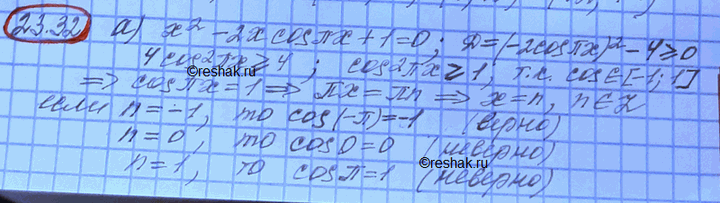 23.32 а) x² - 2x cosπx + 1 = 0; D = (-2cosπx)² - 4 ≥ 0
4cos²πx ≥ 4; cos²πx ≥ 1, т.к. cos ∈ [-1; 1]
⇒ cosπx = 1 ⇒ πx = πn ⇒ x = n, n ∈ Z
если n = -1, то cos(-π) = -1 (верно)
n = 0, то cos0 = 0 (неверно)
n = 1, то cosπ = 1 (неверно)
©reshak.ru
©reshak.ru